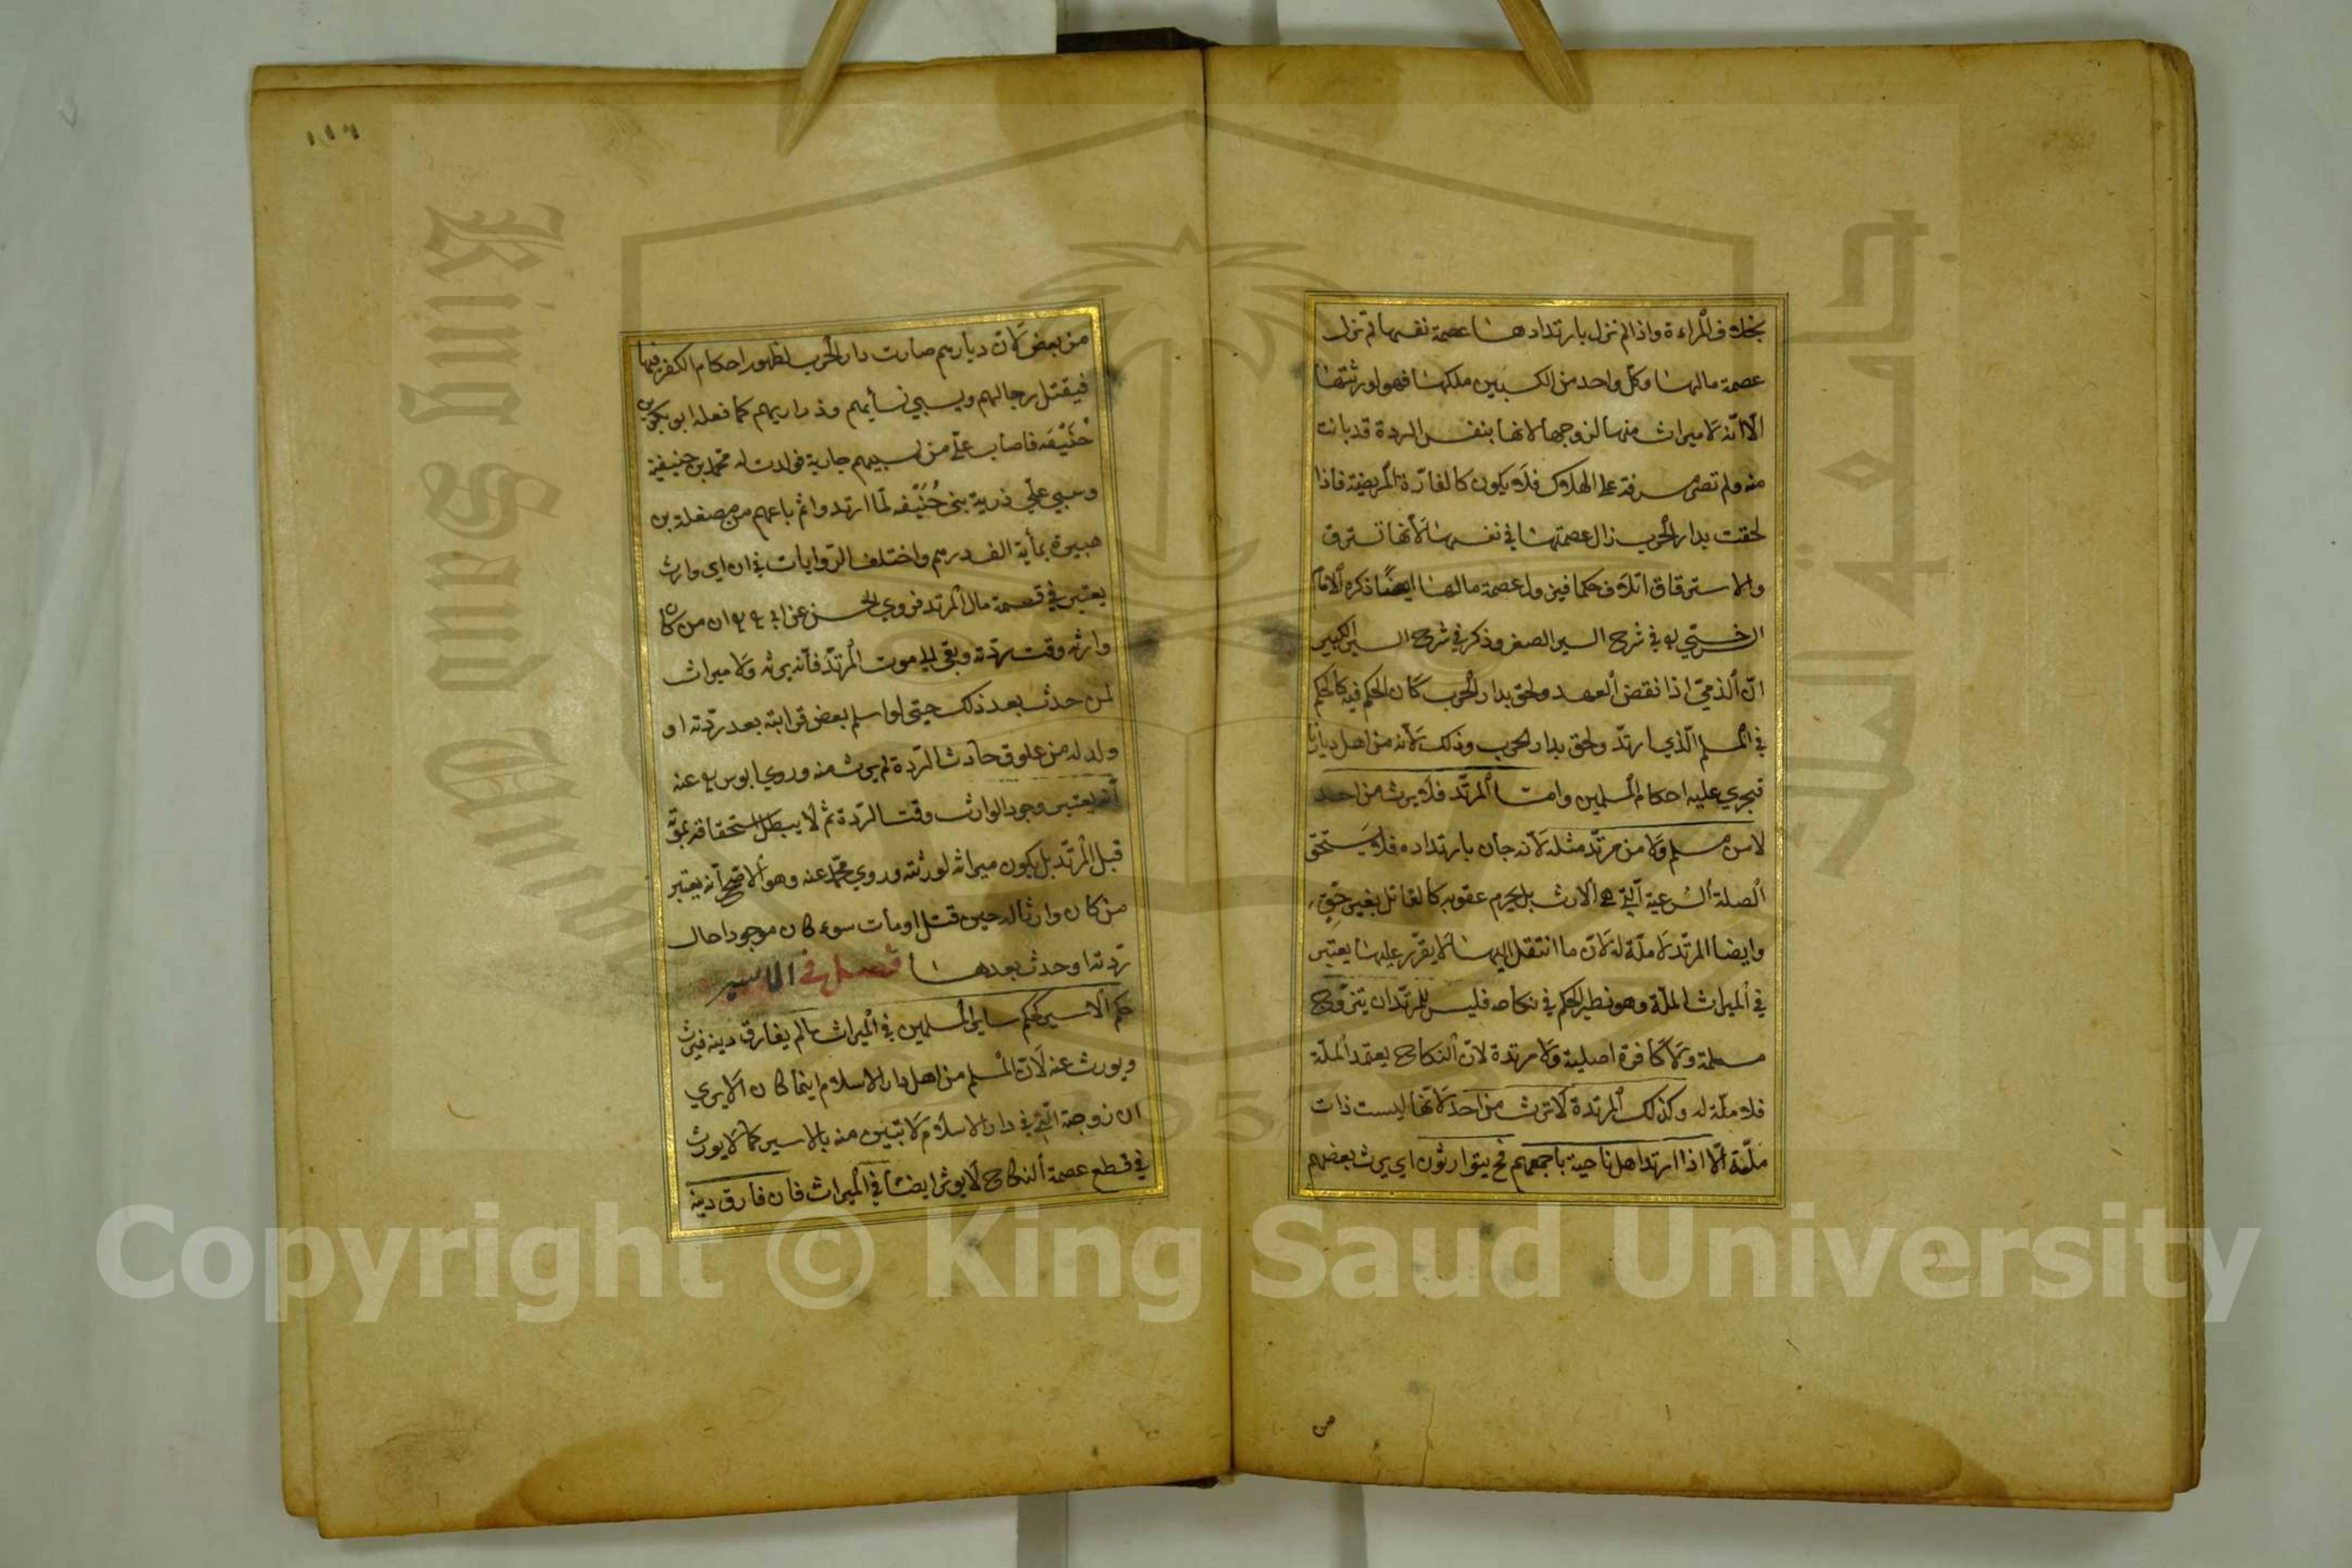 بخلاف المراءة واذا لم تزل بارتدادها عصمة نفسها لم تزل
عصمة مالها وكل واحد من الكسبين ملكها فهو لورثتها
الا انه لا ميراث منها لزوجها لانها بنفس الردة قد بانت
منه ولم تصر مشرفة على الهلاك فلا يكون كالفارّة المريضة فاذا
لحقت بدار الحرب زال عصمتها في نفسها لانها تسترق
والاسترقاق اتلاف حكما فيزول عصمة مالها ايضا ذكره الامام
السرخسي في شرح السير الصغير وذكر في شرح السير الكبير
انّ الذميّ اذا نقض العهد ولحق بدار الحرب كان الحكم فيه كالحكم
في المسلم الّذي ارتدّ ولحق بدار الحرب وذلك لانه من اهل ديارنا
فيجري عليه احكام المسلمين وامّا المرتّد فلا يرث من احد
لا من مسلم ولا من مرتّد مثله لانه جان بارتداده فلا يستحق
الصلة الشرعية الّتي هي الارث بل يحرم عقوبة كالقاتل بغير حقٍّ
وايضا المرتّد لا ملّة له لانّ ما انتقل اليها لا يقرّر عليها يعتبر
في الميراث الملّة وهو نظير الحكم في نكاحه فليس للمرتّد ان يتزوّج
مسلمة ولا كافرة اصلية ولا مرتدة لانّ النكاح يعتمد الملّة
فلا ملّة له وكذلك المرتدة لا ترث من احد لانّها ليست ذات
ملّة الّا اذا ارتد اهل ناحية باجمعهم فح يتوارثون اي يرث بعضهم
من
١١٦
من بعض لانّ ديارهم صارت دار الحرب لظهور احكام الكفر فيها
فيقتل رجالهم ويسبي نسأيهم وذراريهم كما فعله ابو بكر بن
حُنَيْفَه فاصاب عليّ من سبيهم جارية فولدت له محمّد بن حنيفية
وسبي علي ذرية بني حُنَيْفه لمّا ارتدوا ثم باعهم من مصقلة بن
هبيرة بمأية الف درهم واختلف الرّوايات في ان اي وارث
يعتبر في قسمة مال المرتد فروي الحسن عن ابي ان من كان
وارثه وقت ردّته وبقي الى موت المرتدّ فانه يرثه ولا ميراث
لمن حدث بعد ذلك حتى لو اسلم بعض قرابته بعد ردّته او
ولد له من علوق حادث الرّدة لم يرث منه وروي ابو يوسف عنه
أنه يعتبر وجود الوارث وقت الرّدة ثم لا يبطل استحقاقه بموته
قبل المرتّد بل يكون ميراثه لورثته وروي محمّد عنه وهو الاصّح انه يعتبر
من كان وارثا له حين قتل او مأت سوء كان موجودا حال
ردّته او حدث بعدها فصل في الاسير
حكم الاسير كحكم ساير المسلمين في الميراث ما لم يفارق دينه فيرث
ويورث عنه لانّ المسلم من اهل دار الاسلام اينما كان الا يري
ان زوجته الّتي في دار الاسلام لا تبين منه بالاسير كما لا يورث
في قطع عصمة النكاح لا يوثر ايضا في الميراث فان فارق دينه
King Saud University
جامعة الملك
1957
Copyright © King Saud University